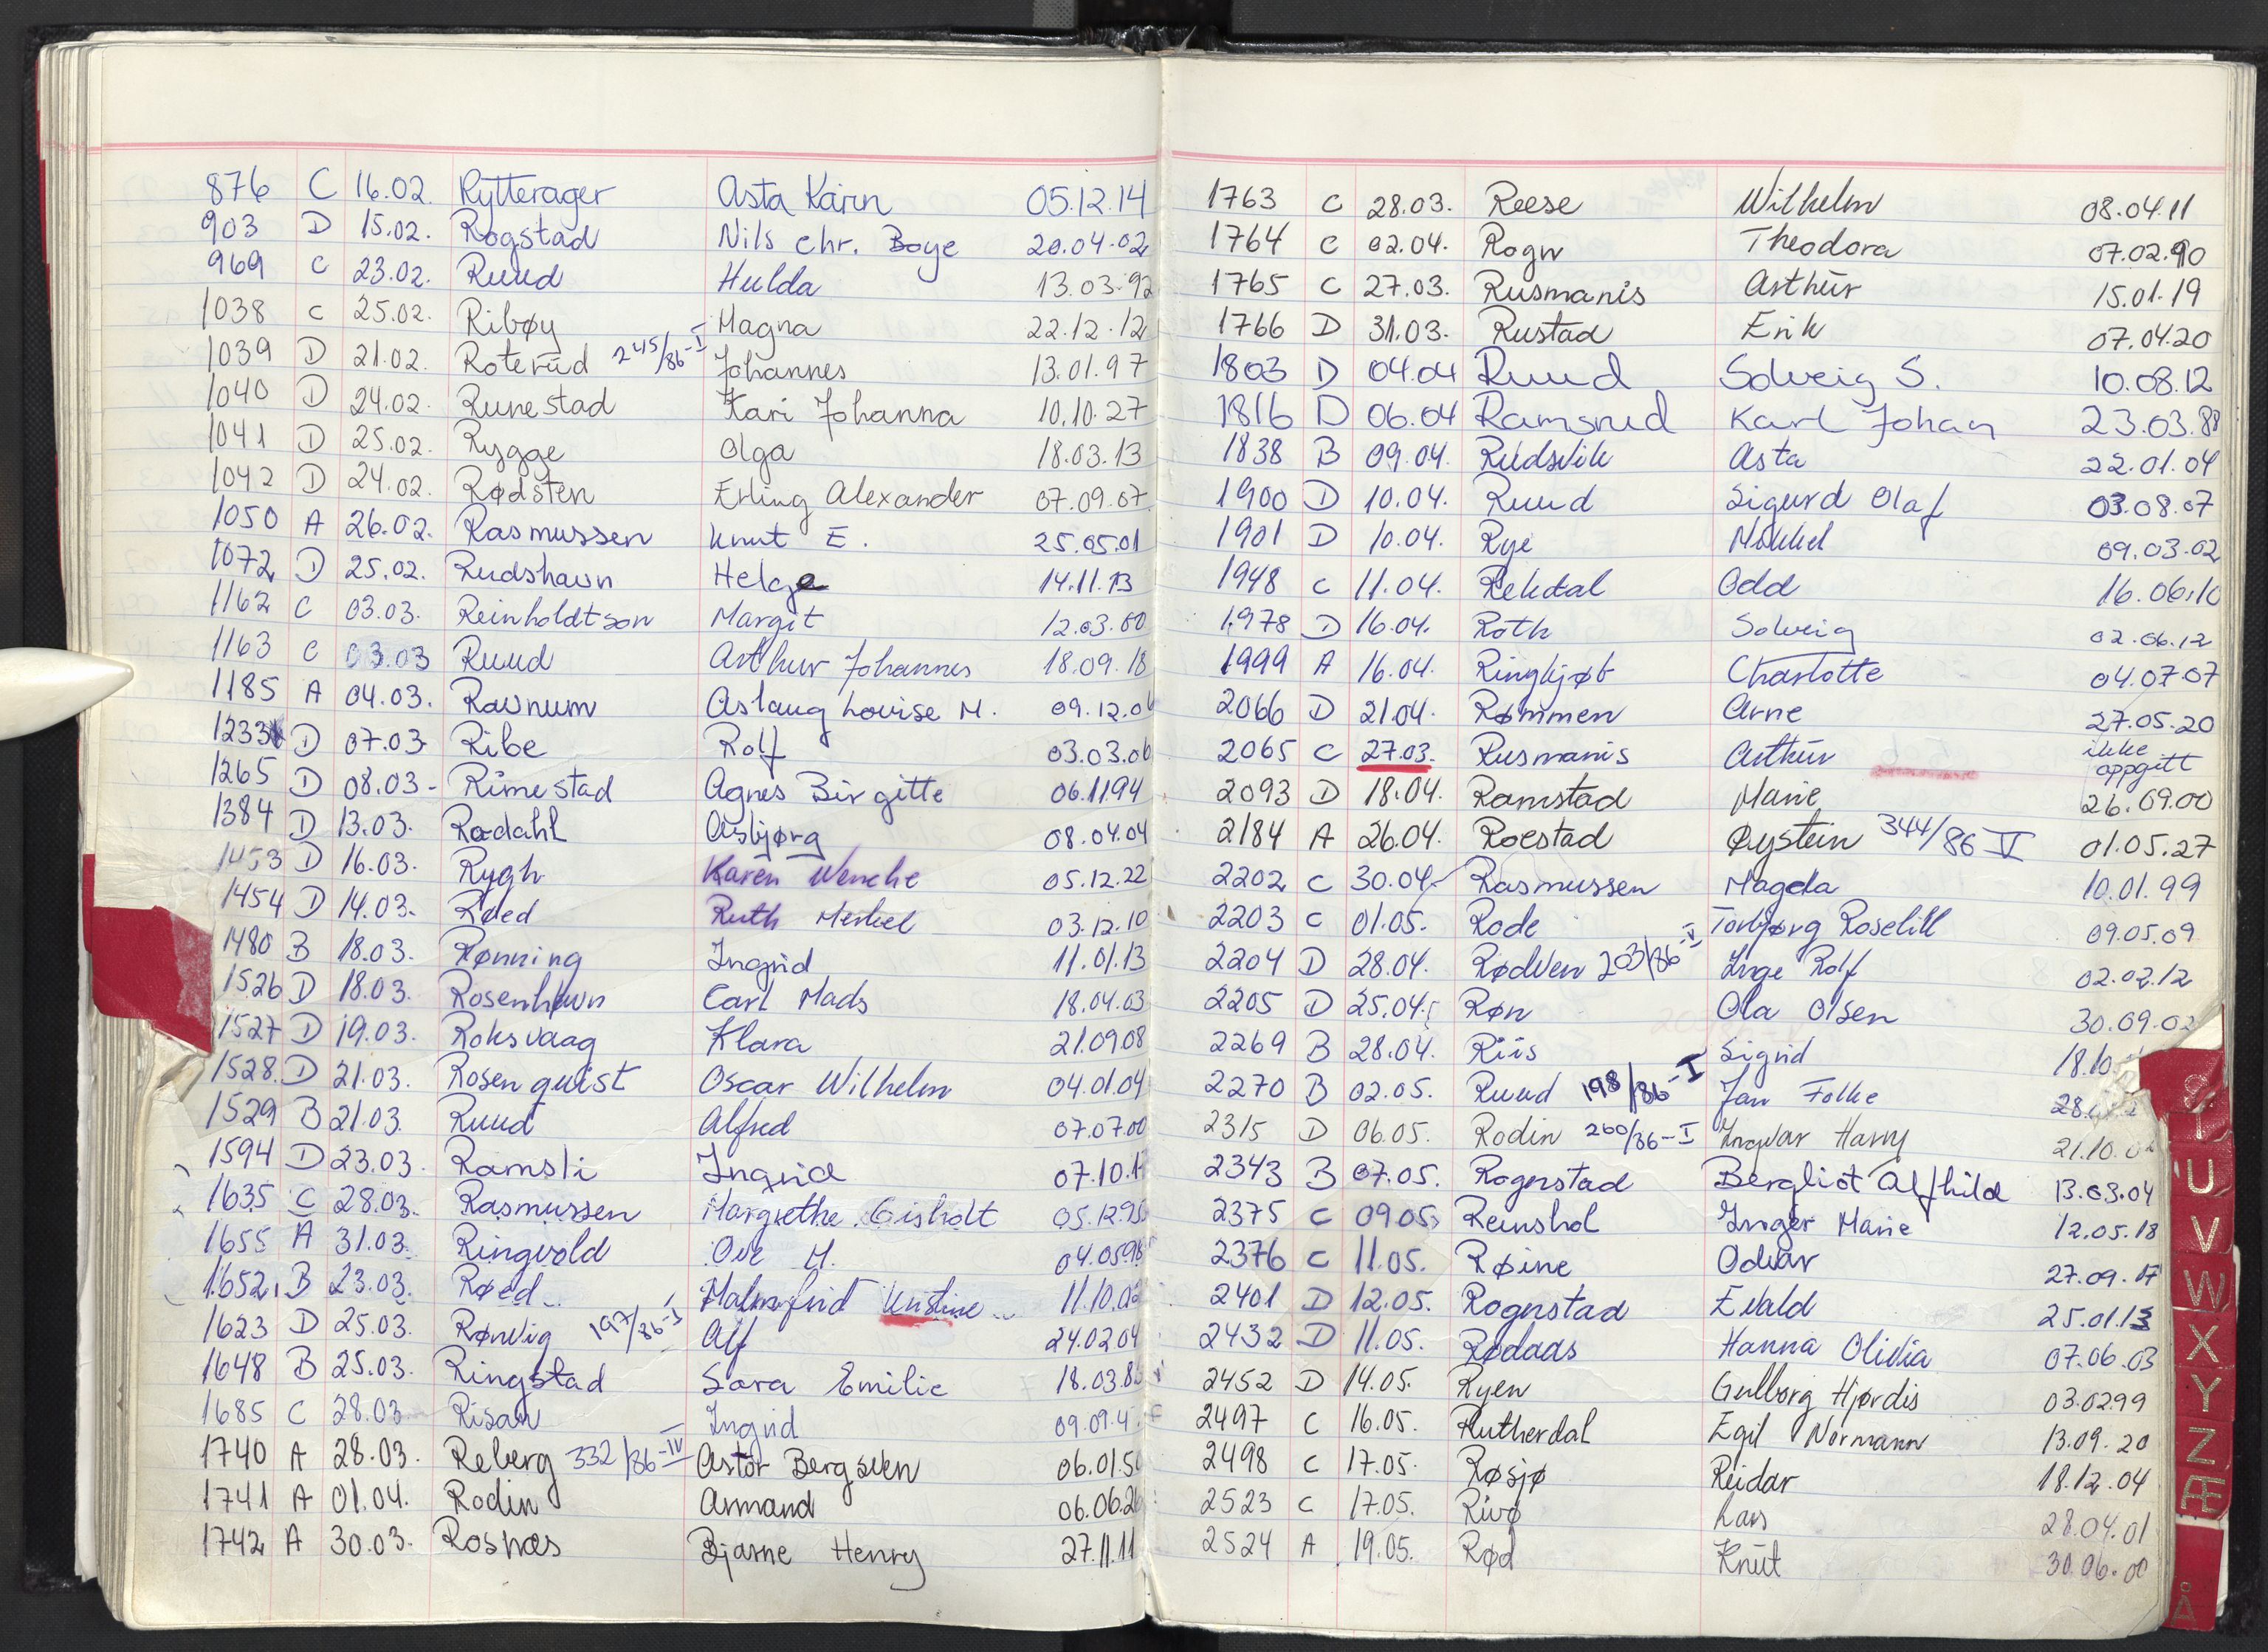 876 C 16.02. Rytterager Asta Karin 05.12.14
903 D 15.02. Rogstad Nils Chr. Boye 20.04.02
969 C 23.02. Ruud Hulda 13.03.92
1038 C 25.02. Ribøy Magna 22.12.12
1039 D 21.02. Roterud 245/86-I Johannes 13.01.97
1040 D 24.02. Runestad Kari Johanna 10.10.27
1041 D 25.02. Rygge Olga 18.03.13
1042 D 24.02. Rødsten Erling Alexander 07.09.07
1050 A 26.02. Rasmussen Knut E. 25.05.01
1072 D 25.02. Rudshavn Helge 14.11.13
1162 C 03.03. Reinholdtson Margit 12.03.00
1163 C 03.03 Ruud Arthur Johannes 18.09.18
1185 A 04.03. Ravnum Aslaug Lovise M. 09.12.06
1233 D 07.03 Ribe Rolf 03.03.06
1265 D 08.03- Rimestad Agnes Birgitte 06.11.94
1384 D 13.03. Rødahl Asbjørg 08.04.04
1453 D 16.03. Rygh Karen Wenche 05.12.22
1454 D 14.03. Roed Ruth Merkel 03.12.10
1480 B 18.03. Rønning Ingrid 11.01.13
1526 D 18.03. Rosenhavn Carl Mads 18.04.03
1527 D 19.03. Roksvaag Klara 21.09.08
1528. D 21.03. Rosenquist Oscar Wilhelm 04.01.04
1529 B 21.03. Ruud Alfred 07.07.00
1594 D 23.03. Ramsli Ingrid 07.10.1
1635 C 28.03. Rasmussen Margrethe Gisholt 05.12.95
1655 A 31.03. Ringvold Ove M. 04.05.98
1652. B 23.03. Røed Malmfrid Kristine 11.10.02
1623 D 25.03. Rønvig 197/86-I Alf 24.02.04
1648 B 25.03. Ringstad Sara Emilie 18.03.8
1685 C 28.03 Risan Ingrid 09.09.4
1740 A 28.03. Reberg 332/86-IV Astor Bergsven 06.01.5
1741 A 01.04. Rodin Armand 06.06.26
1742 A 30.03. Rosnæs Bjarne Henry 27.11.11
1763 C 28.03. Reese Wilhelm 08.04.11
1764 C 02.04. Rogn Theodora 07.02.90
1765 C 27.03. Rusmanis Arthur 15.01.19
1766 D 31.03. Rustad Erik 07.04.20
1803 D 04.04 Ruud Solveig S. 10.08.12
1816 D 06.04 Ramsrud Karl Johan 23.03.88
1838 B 09.04. Rudsvik Asta 22.01.04
1900 D 10.04. Ruud Sigurd Olaf 03.08.07
1901 D 10.04. Rye Mikkel 09.03.02
1948 C 11.04. Rekdal Odd 16.06.10
1978 D 16.04. Roth Solveig 02.06.12
1999 A 16.04. Ringkjøb Charlotte 04.07.07
2066 D 21.04. Rømmen Arne 27.05.20
2065 C 27.03. Rusmanis Arthur ikke oppgitt
2093 D 18.04. Ramstad Marie 26.09.00
2184 A 26.04. Roestad Øystein 344/86 V 01.05.27
2202 C 30.04. Rasmussen Magda 10.01.99
2203 C 01.05. Rode Torbjørg Roselill 09.05.09
2204 D 28.04. Rødven 203/86-V Inge Rolf 02.02.12
2205 D 25.04. Røn Ola Olsen 30.09.02
2269 B 28.04. Riis Sigrid 18.10
2270 B 02.05. Ruud 198/86-I Jan Folke 28.
2315 D 06.05. Rodin 260/86-I Ingvar Harry 21.10.0
2343 B 07.05. Rognstad Bergliot Alfhild 13.03.04
2375 C 09.05. Renshol Inger Marie 12.05.18
2376 C 11.05. Røine Odvar 27.09.17
2401 D 12.05. Rognstad Evald 25.01.13
2432 D 11.05. Rødaas Hanna Olivia 07.06.03
2452 D 14.05. Ryen Gulborg Hjørdis 03.02.99
2497 C 16.05. Rutherdal Egil Normann 13.09.20
2498 C 17.05. Røsjø Reidar 18.12.04
2523 C 17.05. Rivø Lars 28.04.01
2524 A 19.05. Rød Knut 30.06.00
U
V
W
X
Y
Z
Æ
Å